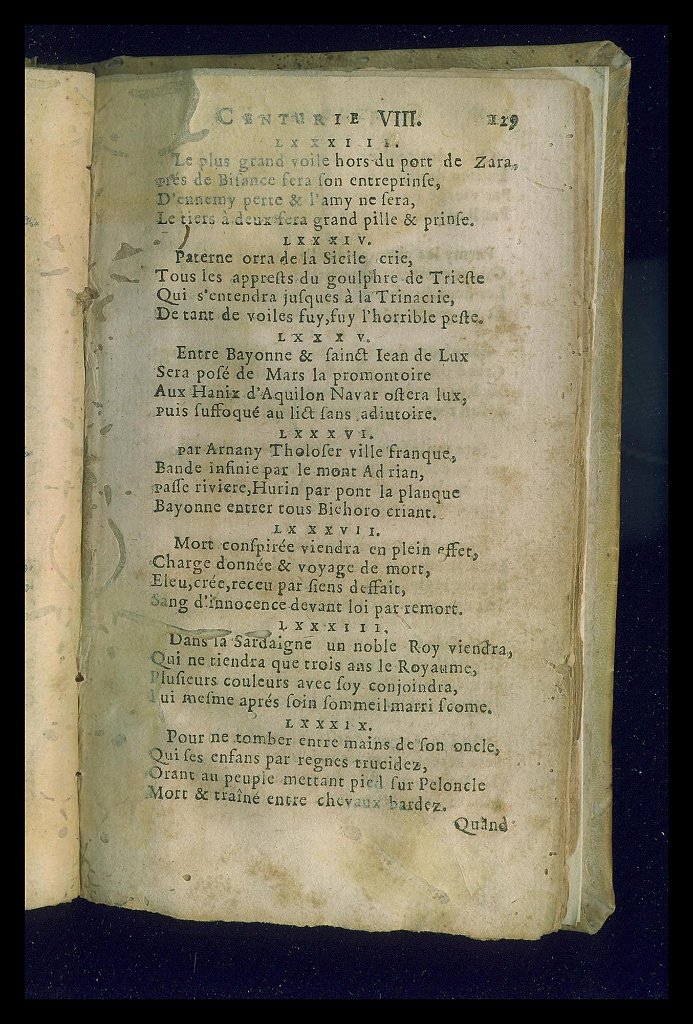 CENTURIE VIII. 129
LXXXIII.
Le plus grand voile hors du port de Zara,
prés de Bisance fera ſon entreprinſe,
D'ennemy perte & l'amy ne ſera,
Le tiers à deux fera grand pille & prinſe.
LXXXIV.
Paterne orra de la Sicile crie,
Tous les appreſts du goulphre de Trieſte
Qui s'entendra juſques à la Trinacrie,
De tant de voiles fuy, fuy l'horrible peſte.
LXXXV.
Entre Bayonne & ſainct Iean de Lux
Sera poſé de Mars la promontoire
Aux Hanix d'Aquilon Navar oſtera lux,
puis ſuffoqué au lict ſans adiutoire.
LXXXVI.
par Arnany Tholoſer ville franque,
Bande infinie par le mont Adrian,
paſſe riviere, Hurin par pont la planque
Bayonne entrer tous Bichoro criant.
LXXXVII.
Mort conſpirée viendra en plein effet,
Charge donnée & voyage de mort,
Eleu, crée, receu par ſiens deffait,
Sang d'innocence devant loi par remort.
LXXXIII.
Dans la Sardaigne un noble Roy viendra,
Qui ne tiendra que trois ans le Royaume,
Pluſieurs couleurs avec ſoy conjoindra,
Lui meſme aprés ſoin ſommeil marri ſcome.
LXXXIX.
Pour ne tomber entre mains de ſon oncle,
Qui ſes enfans par regnes trucidez,
Orant au peuple mettant pied ſur Peloncle
Mort & traîné entre chevaux bardez.
Quand